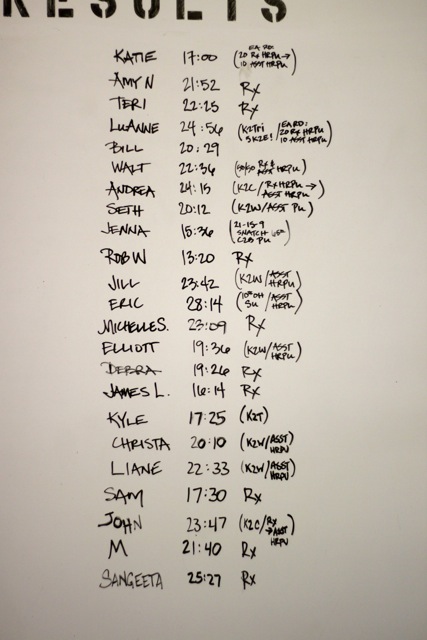 RESULTS
KATIE 17:00 (EA RD: 20 RX HRPU → 10 ASST HRPU)
AMY N 21:52 Rx
TERI 22:25 Rx
LUANNE 24:56 (K2Tri SK2E! / EA RD: 20 RX HRPU 10 ASST HRPU)
BILL 20:29
WALT 22:36 (50/50 RX & ASST HRPU)
ANDREA 24:15 (K2C / RX HRPU → ASST HRPU)
SETH 20:12 (K2W/ASST PU)
JENNA 15:36 (21-15-9 SNATCH 65# C2B PU)
ROB W 13:20 Rx
JILL 23:42 (K2W/ASST HRPU)
ERIC 28:14 (10# OH SU / ASST HRPU)
MICHELLE S. 23:09 Rx
ELLIOTT 19:36 (K2W/ASST HRPU)
DEBRA 19:26 Rx
JAMES L. 16:14 Rx
KYLE 17:25 (K2T)
CHRISTA 20:10 (K2W/ASST HRPU)
LIANE 22:33 (K2W/ASST HRPU)
SAM 17:30 Rx
JOHN 23:47 (K2C/RX → ASST HRPU)
M 21:40 Rx
SANGEETA 25:27 Rx